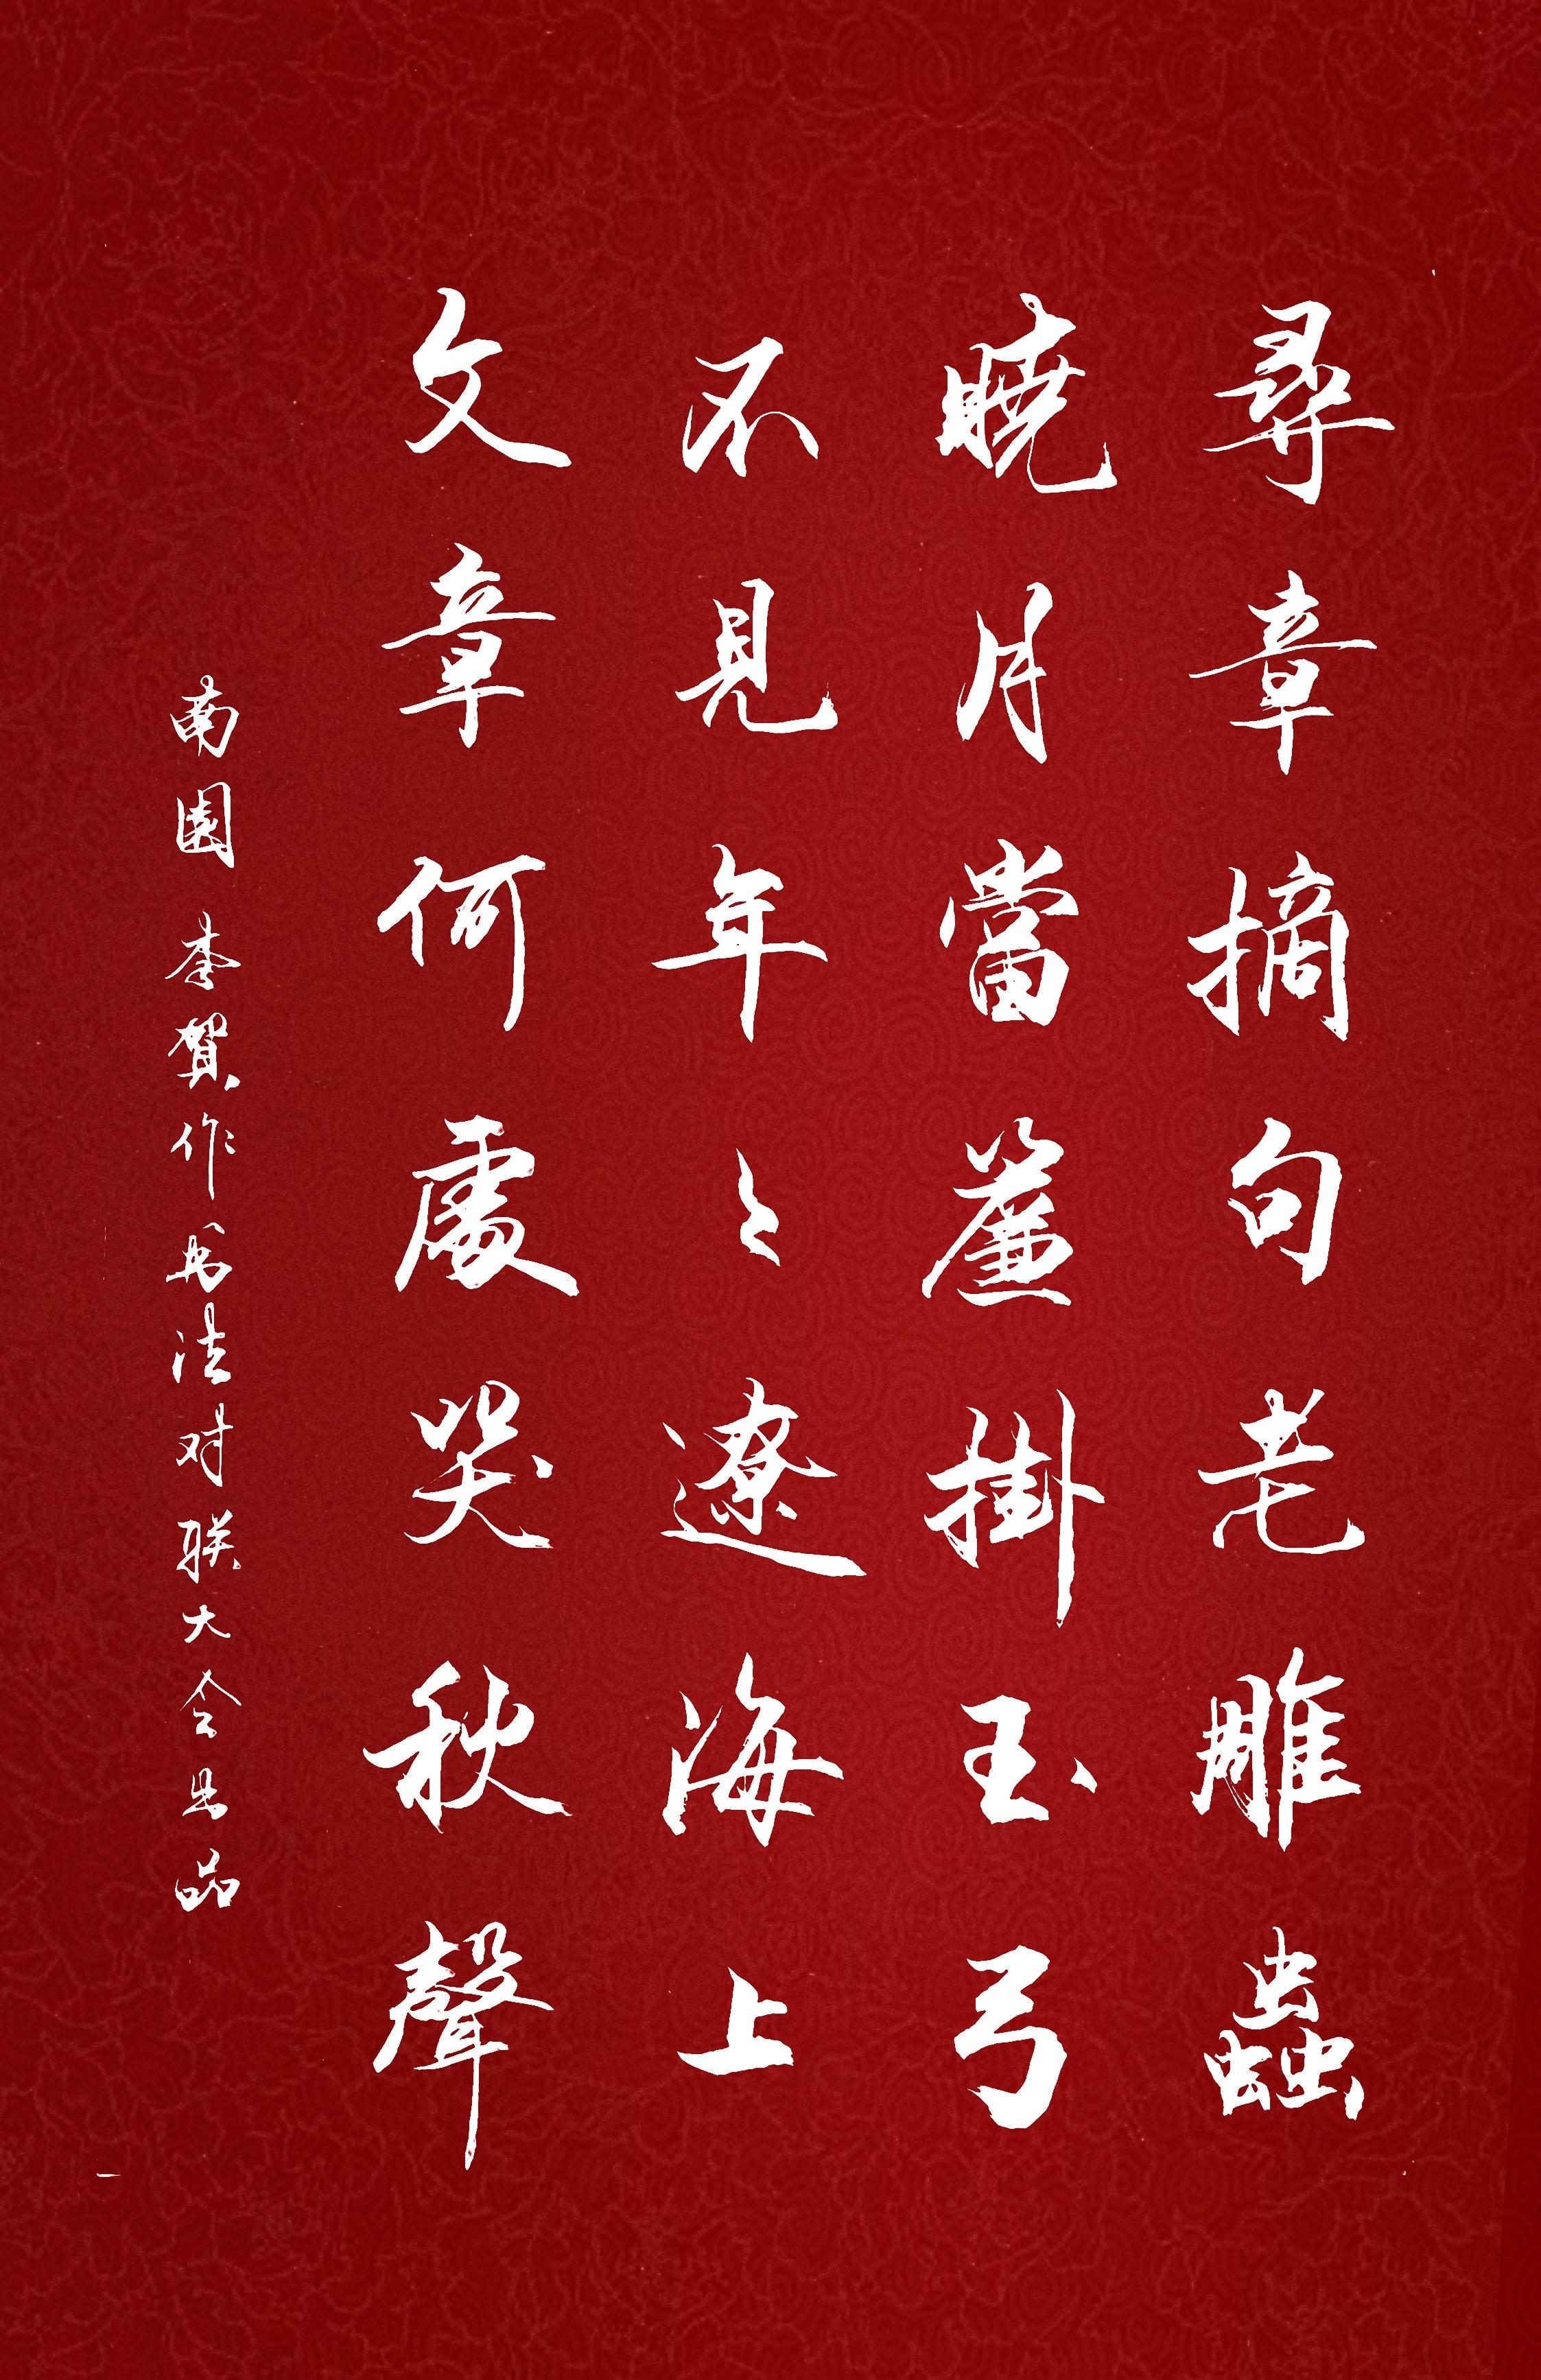 尋章摘句老雕蟲
曉月當簾掛玉弓
不見年〻遼海上
文章何處哭秋聲
南園 李賀作书法对联大会出品